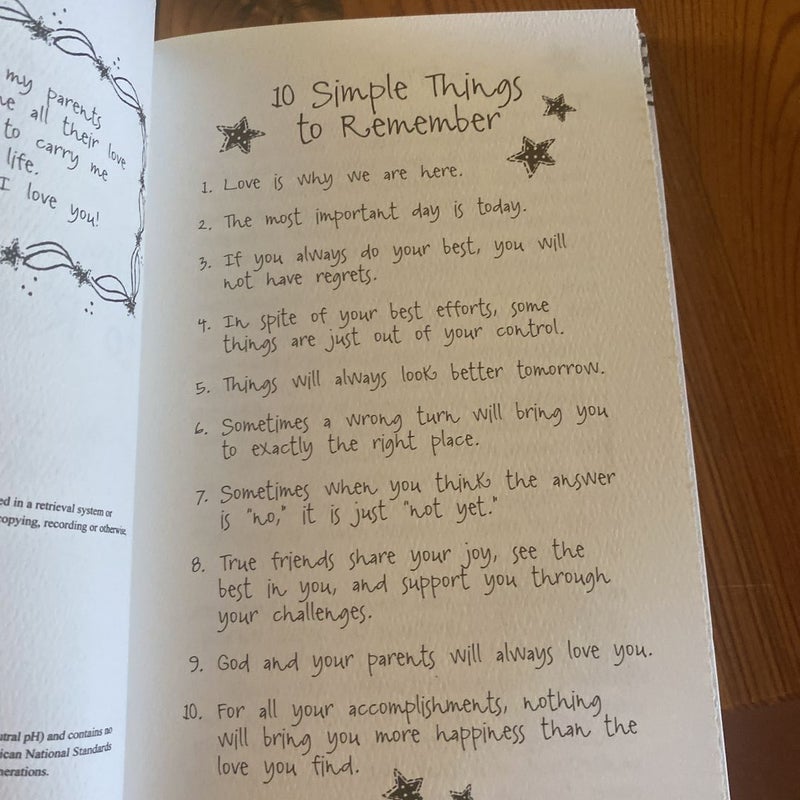 my parents
all their love
to carry me
life.
I love you!
ed in a retrieval system or
opying, recording or otherwise,
utral pH) and contains no
ican National Standards
nerations.
10 Simple Things
to Remember
1. Love is why we are here.
2. The most important day is today.
3. If you always do your best, you will
not have regrets.
4. In spite of your best efforts, some
things are just out of your control.
5. Things will always look better tomorrow.
6. Sometimes a wrong turn will bring you
to exactly the right place.
7. Sometimes when you think the answer
is "no," it is just "not yet."
8. True friends share your joy, see the
best in you, and support you through
your challenges.
9. God and your parents will always love you.
10. For all your accomplishments, nothing
will bring you more happiness than the
love you find.